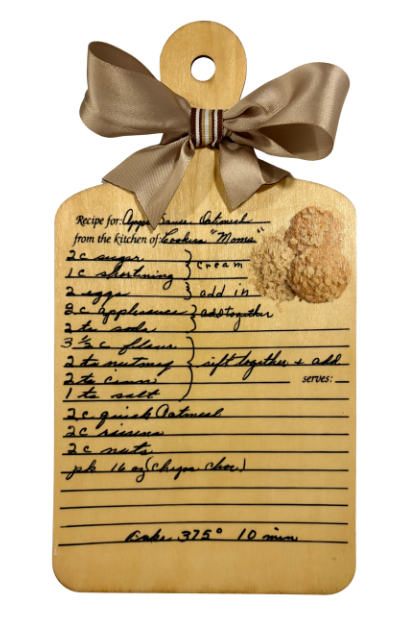 Recipe for: Apple Sauce Oatmeal
from the kitchen of: Cookies "Moms"
2 c sugar
1 c shortning } cream
2 eggs } add in
2 c applesauce } add together
2 ts soda
3 ½ c flour
2 ts nutmeg } sift together + add
2 ts cinn
serves:
1 ts salt
2 c quick Oatmeal
2 c raisins
2 c nuts
pk 16 oz (chips choc.)
Bake 375° 10 min